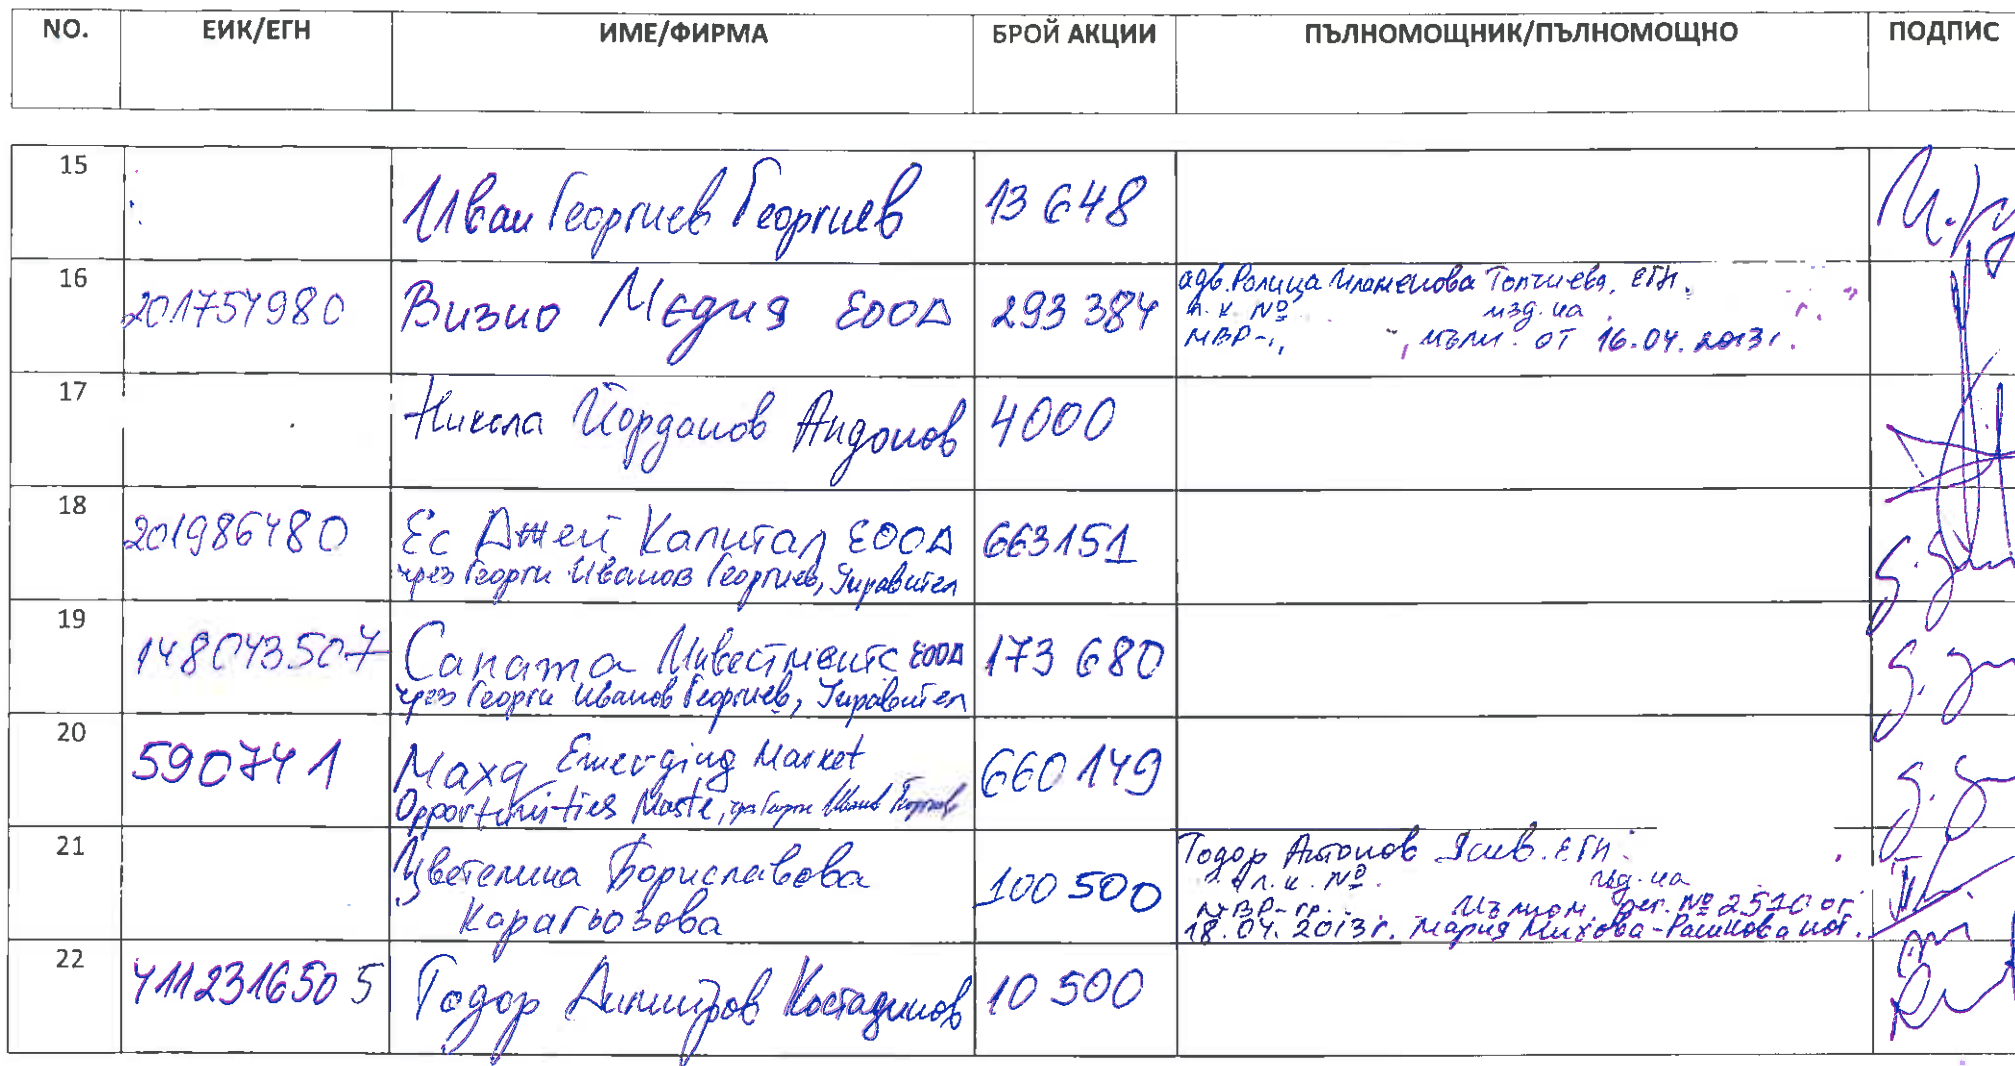 NO. ЕИК/ЕГН ИМЕ/ФИРМА БРОЙ АКЦИИ ПЪЛНОМОЩНИК/ПЪЛНОМОЩНО ПОДПИС
15 Иван Георгиев Георгиев 13 648
16 201754980 Визио Медия ЕООД 293 384 адв. Ралица Пламенова Топчиева, ЕГН.
л.к. № изд. на г.
МВР-, пълн. от 16.04.2013г.
17 Никола Йорданов Андонов 4000
18 201986480 Ес Джей Капитал ЕООД 663151
чрез Георги Иванов Георгиев, Управител
19 148043507 Сапата Инвестмънтс ЕООД 173 680
чрез Георги Иванов Георгиев, Управител
20 590741 Maxq Emerging Market 660 149
Opportunities Maste, чрез Георги Иванов Георгиев
21 Цветелина Бориславова 100 500 Тодор Антонов ЕГН.
Карагьозова л.к. № изд. на
МВР-гр. Пълном. рег. № 2510 от
18.04.2013г. Мария Михова-Рашкова нот.
22 4112316505 Тодор Димитров Костадинов 10 500